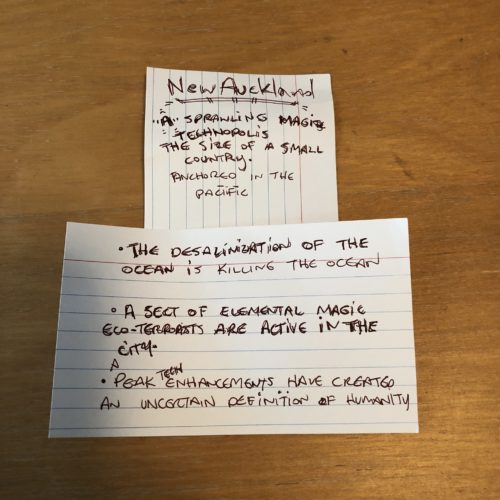 New Auckland
A SPRAWLING MAGIC
TECHNOPOLIS
THE SIZE OF A SMALL
COUNTRY.
ANCHORED IN THE
PACIFIC
• THE DESALINIZATION OF THE
OCEAN IS KILLING THE OCEAN
• A SECT OF ELEMENTAL MAGIC
ECO-TERRORISTS ARE ACTIVE IN THE
CITY.
• A PEAK TECH ENHANCEMENTS HAVE CREATED
AN UNCERTAIN DEFINITION OF HUMANITY